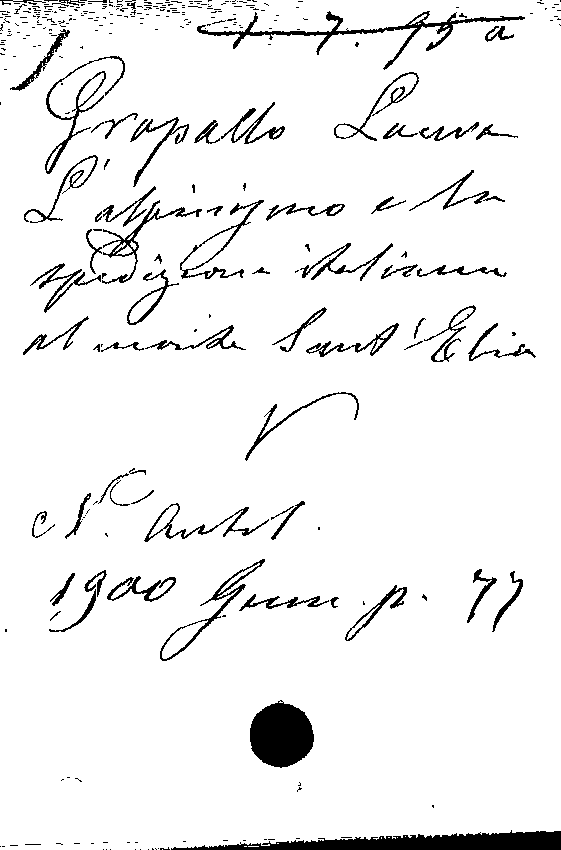 1. 7. 95 a
Gropallo Laura
L'alpinismo e la
spedizione italiana
al monte Sant'Elia
V
N. Antol.
1900 Genn. p. 77